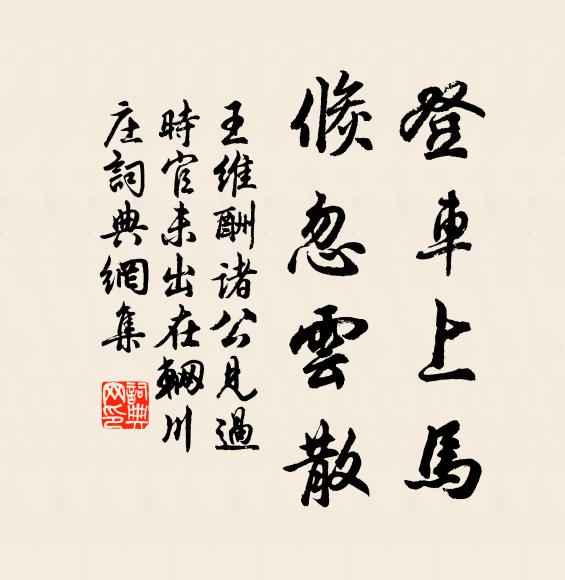 登車上馬
倏忽雲散
王維酬诸公見過
時官未出在輞川
庄詞典網集
詞典网印